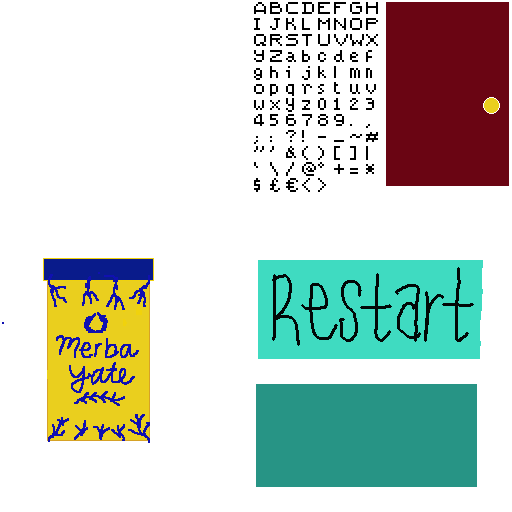 ABCDEFGH
IJKLMNOP
QRSTUVWX
YZabcdef
ghijklmn
opqrstuv
wxyz0123
456789.,
;:?!-_~#
"'&()[]|
`\/@°+=*
$£€<>
Merba
yate
Restart